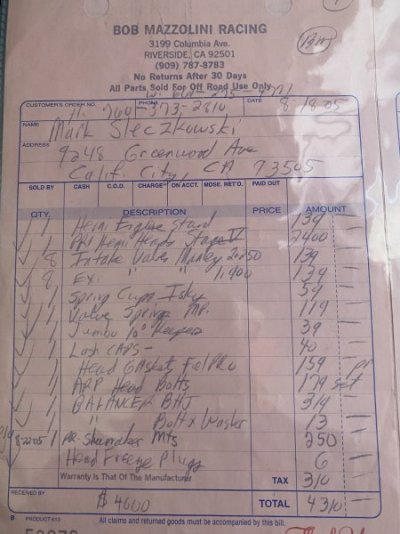 BOB MAZZOLINI RACING
3199 Columbia Ave.
RIVERSIDE, CA 92501
(909) 787-8783
No Returns After 30 Days
All Parts Sold For Off Road Use Only
CUSTOMER'S ORDER NO. PHONE DATE
H. 760-373-2810 8-18-05
NAME Mark Sleczkowski
ADDRESS 9248 Greenwood Ave
Calif. City, CA 93505
SOLD BY CASH C.O.D. CHARGE ON ACCT. MDSE. RET'D. PAID OUT
QTY. DESCRIPTION PRICE AMOUNT
1 Hemi Engine Stand 139 —
1 Hemi Heads Stage V 2400 —
8 Intake Valve Manley 139 —
8 Ex. " " 139 —
1 Spring Cups Isky 59 —
1 Valve Springs 119 —
1 Jumbo 10° Keepers 39 —
1 Lash CAPS - 40 —
1 Head Gasket FelPro 159 pr
1 ARP Head Bolts 179 set
1 BALANCER BHJ 319 —
1 " Bolt & Washer 13 —
8-22-05 1 PR. Mts 250 —
Head Freeze Plugs 6 —
Warranty Is That Of The Manufacturer TAX 310 —
RECEIVED BY
$ 4000 TOTAL 4310 —
B PRODUCT 610 All claims and returned goods must be accompanied by this bill.